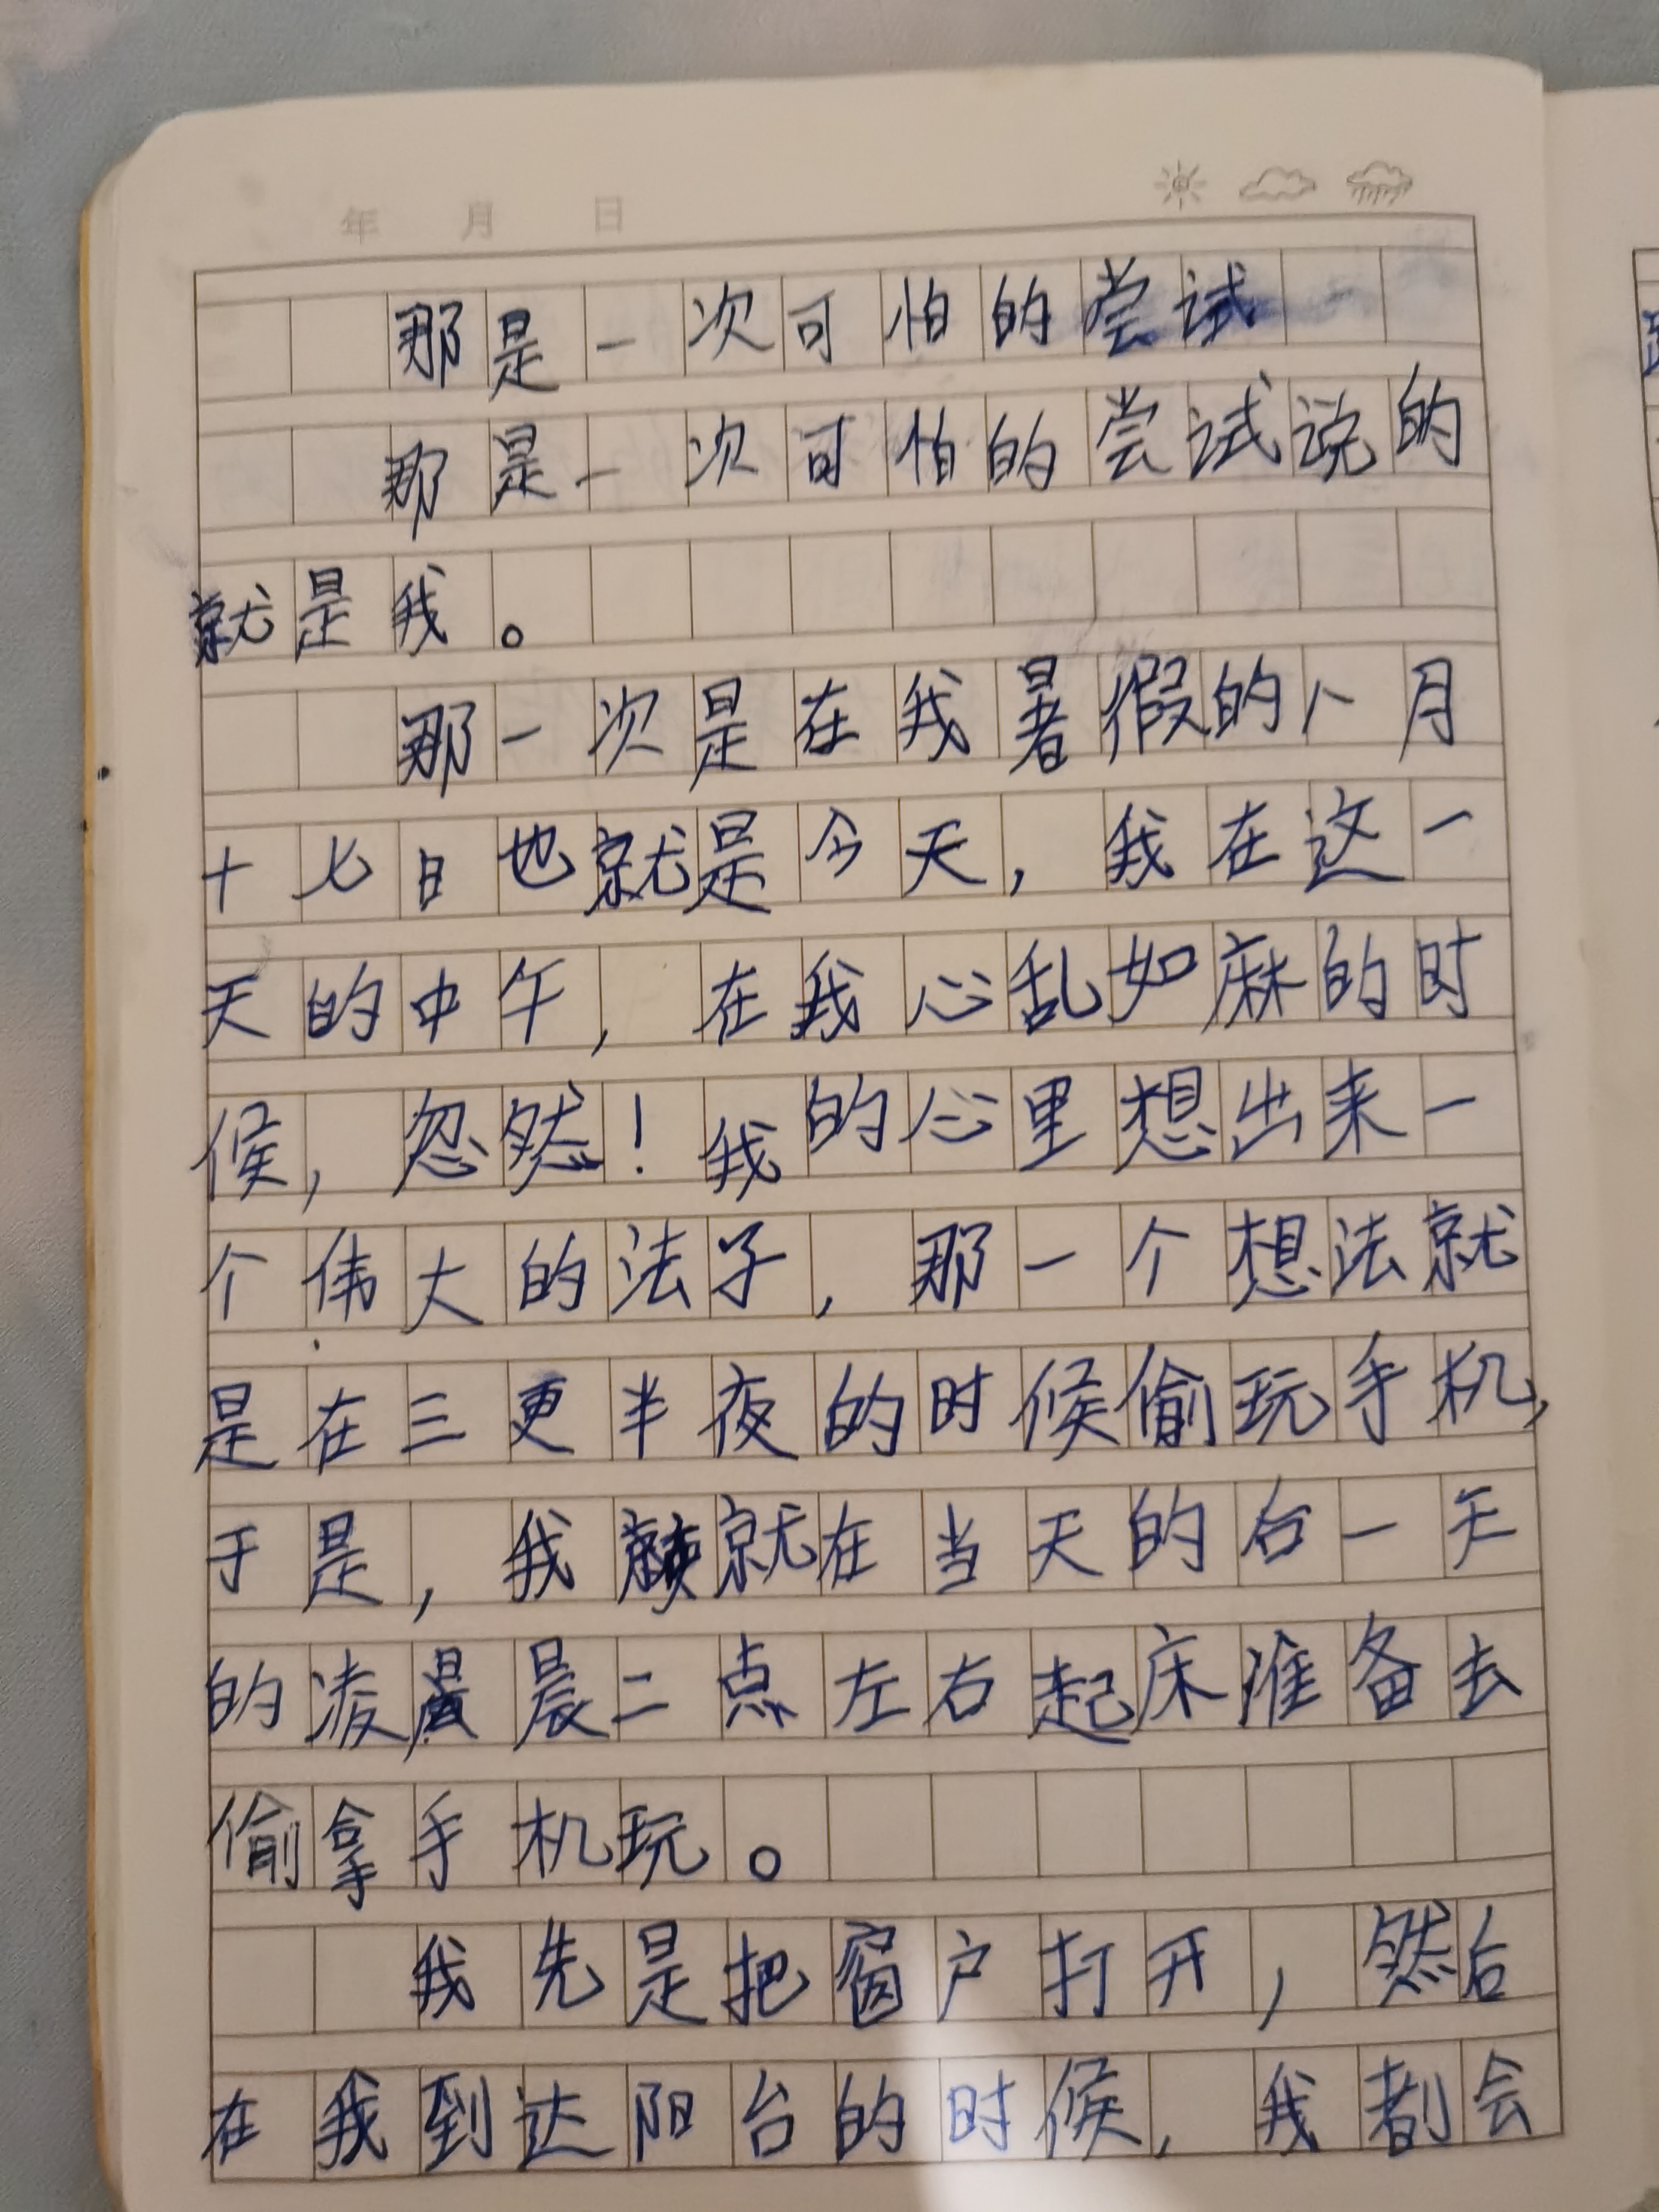 年 月 日
那是一次可怕的尝试
那是一次可怕的尝试说的
就是我。
那一次是在我暑假的八月
十七日也就是今天，我在这一
天的中午，在我心乱如麻的时
候，忽然！我的心里想出来一
个伟大的法子，那一个想法就
是在三更半夜的时候偷玩手机，
于是，我就在当天的后一天
的凌晨二点左右起床准备去
偷拿手机玩。
我先是把窗户打开，然后
在我到达阳台的时候，我都会